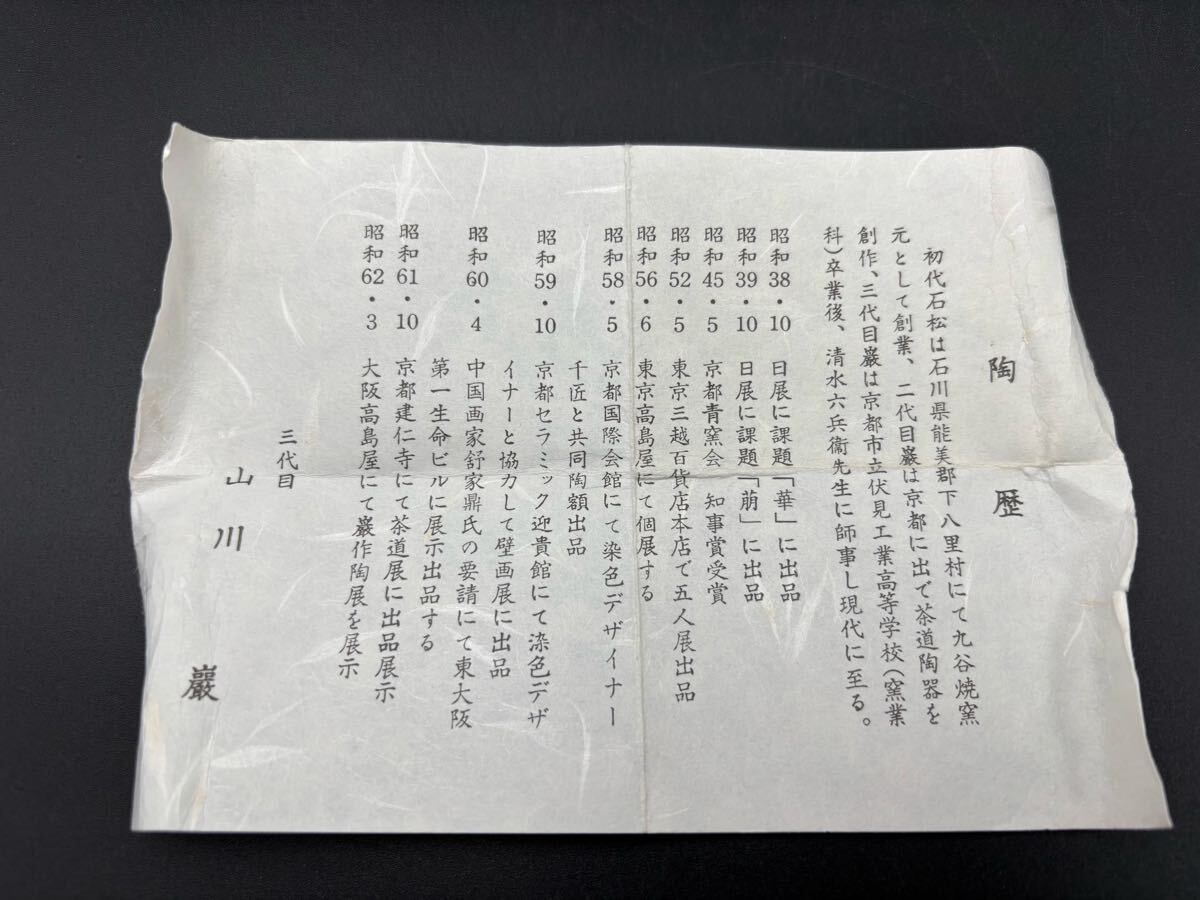 陶歴
初代石松は石川県能美郡下八里村にて九谷焼窯
元として創業、二代目巌は京都に出で茶道陶器を
創作、三代目巌は京都市立伏見工業高等学校(窯業
科)卒業後、清水六兵衞先生に師事し現代に至る。
昭和38・10 日展に課題「華」に出品
昭和39・10 日展に課題「萠」に出品
昭和45・5 京都青窯会 知事賞受賞
昭和52・5 東京三越百貨店本店で五人展出品
昭和56・6 東京高島屋にて個展する
昭和58・5 京都国際会館にて染色デザイナー
千匠と共同陶額出品
昭和59・10 京都セラミック迎貴館にて染色デザ
イナーと協力して壁画展に出品
昭和60・4 中国画家舒家鼎氏の要請にて東大阪
第一生命ビルに展示出品する
昭和61・10 京都建仁寺にて茶道展に出品展示
昭和62・3 大阪高島屋にて巌作陶展を展示
三代目
山川 巖